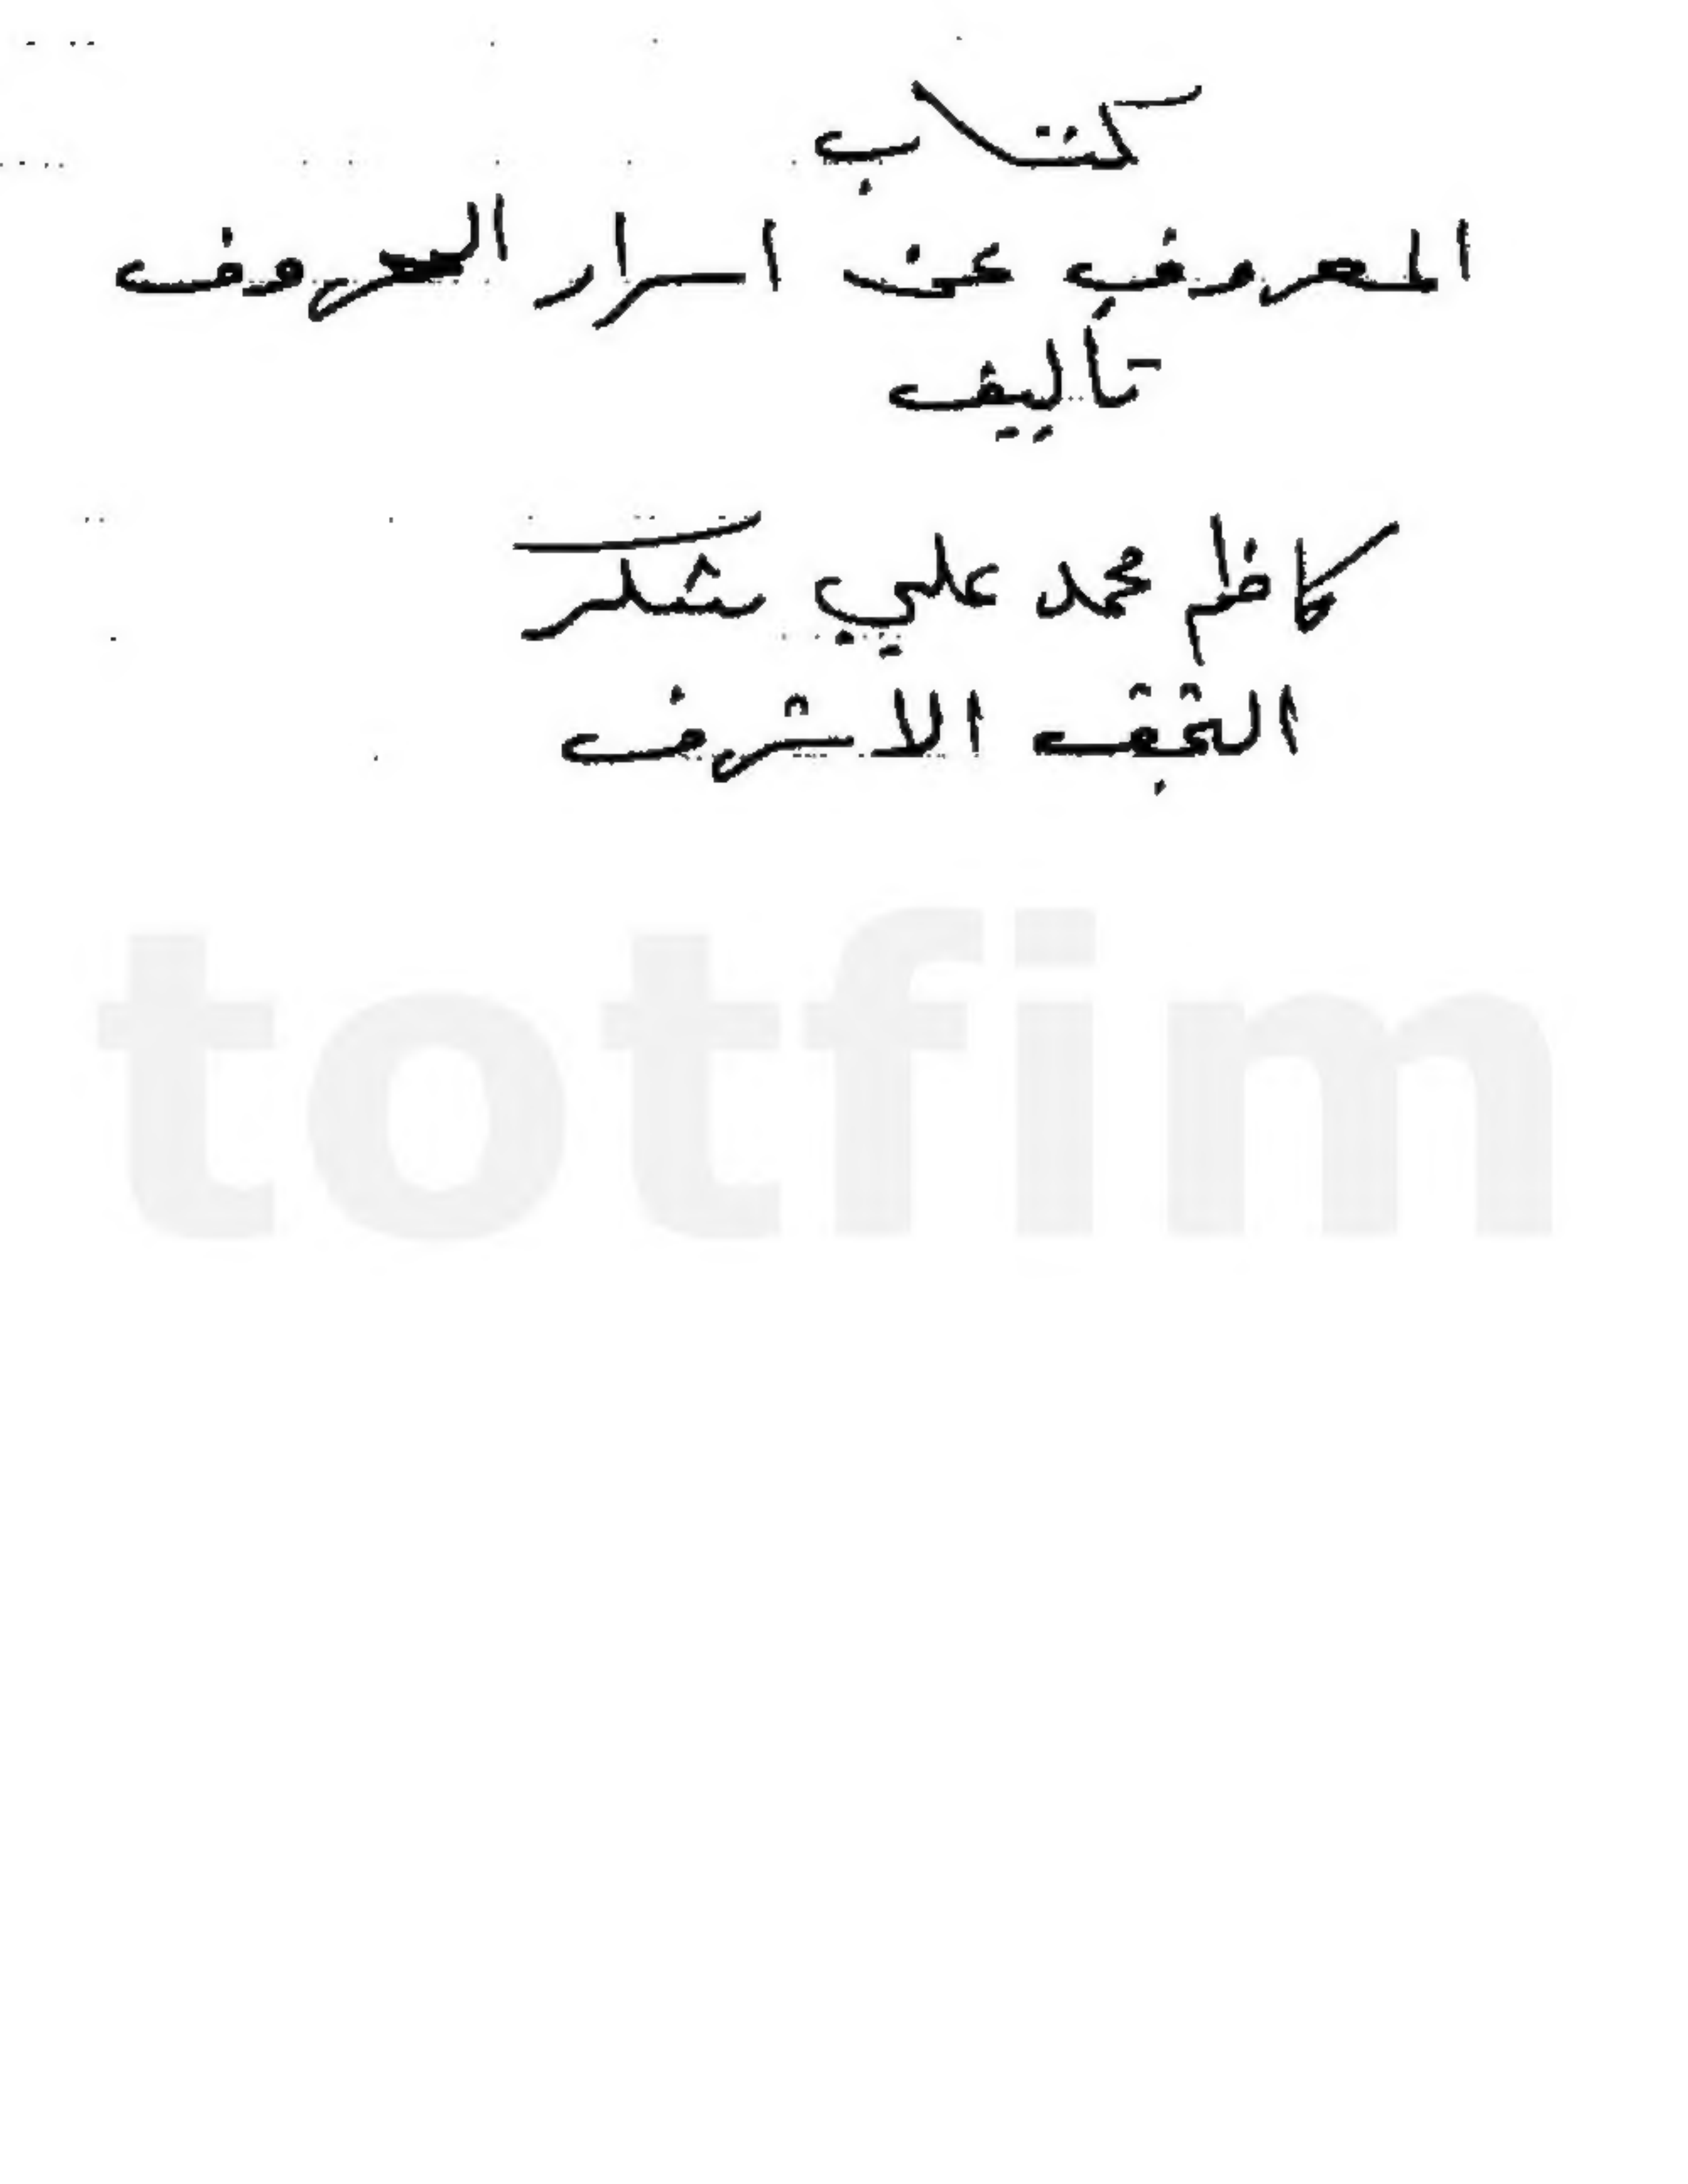 كتاب
المعروف عن اسرار الحروف
تأليف
كاظم محمد علي شكر
النجف الاشرف
totfim